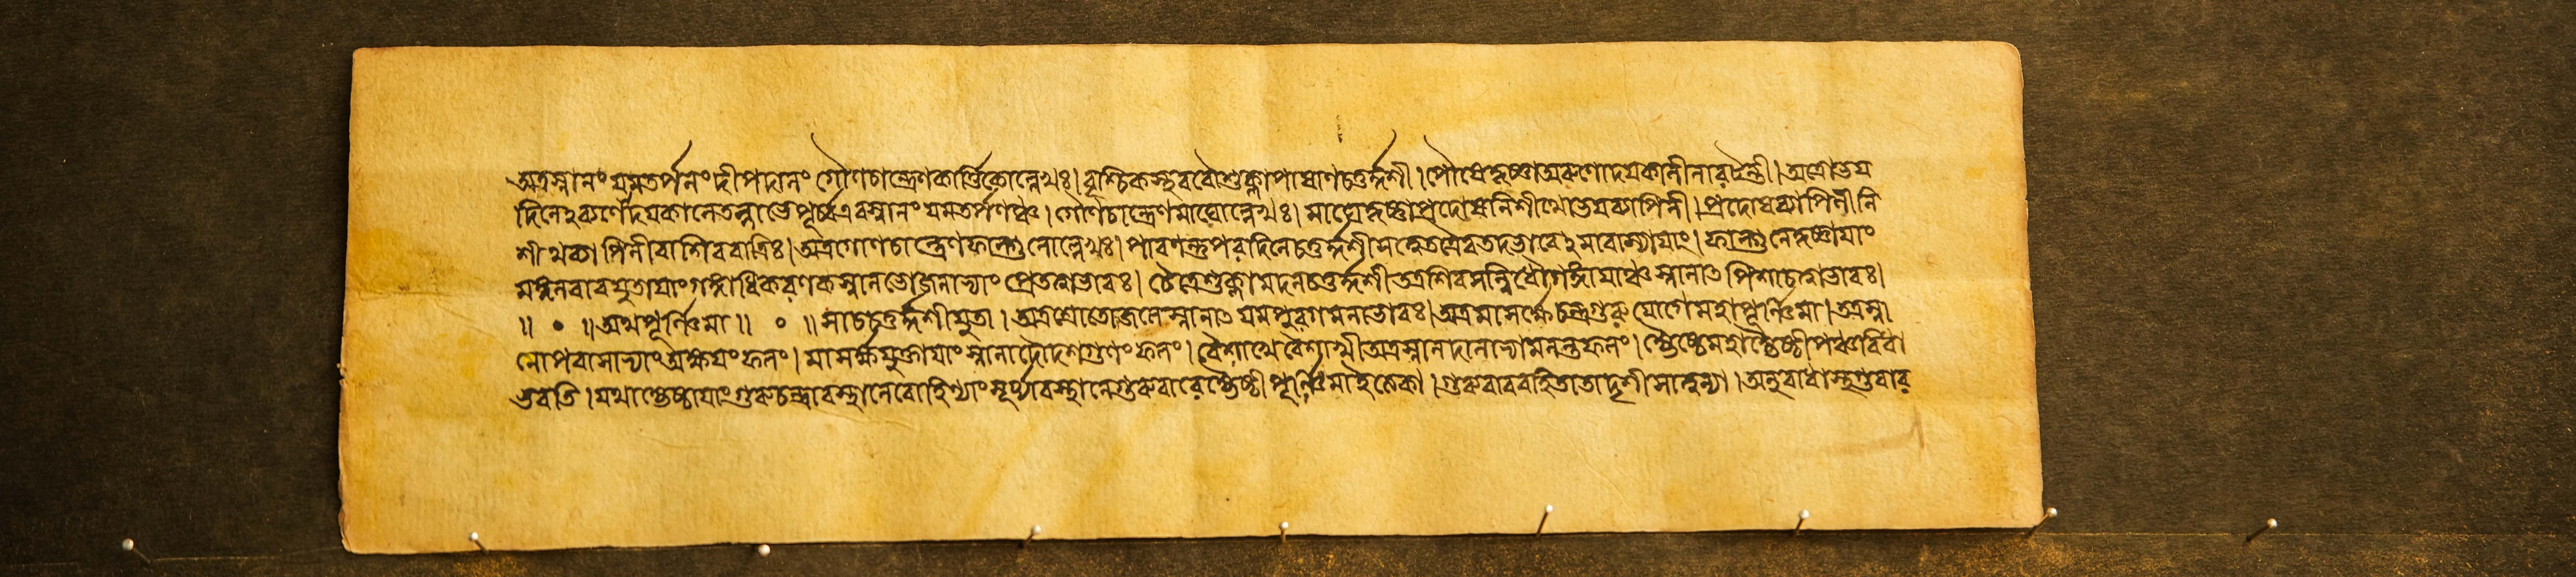 অত্রস্নানং যমতর্পনং দীপদানং গৌণচান্দ্রেণকার্ত্তিকোল্লেখঃ। বৃশ্চিকস্থরবৌশুক্লাপাষাণচতুর্দ্দশী। পৌষেকৃষ্ণাঅরুণোদয়কালীনারটন্তী। অত্রোভয়
দিনেঽরুণোদয়কালেতল্লাভেপূর্ব্বএবস্নানং যমতর্পণঞ্চ। গৌণচান্দ্রেণমাঘোল্লেখঃ। মাঘেকৃষ্ণাপ্রদোষনিশীথোভয়ব্যাপিনী। প্রদোষব্যাপিনীনি
শীথব্যাপিনীবাশিবরাত্রিঃ। অত্রগৌণচান্দ্রেণফাল্গুনোল্লেখঃ। পারণন্তুপরদিনেচতুর্দ্দশীসত্ত্বেতত্রৈবতদভাবেঽমাবাস্যায়াং। ফাল্গুনেকৃষ্ণায়াং
মঙ্গলবারযুতায়াংগঙ্গাধিকরণকস্নানভোজনাভ্যাং প্রেতত্বাভাবঃ। চৈত্রেশুক্লামদনচতুর্দ্দশীঅত্রশিবসন্নিধৌগঙ্গায়াঞ্চ স্নানাৎ পিশাচত্বাভাবঃ।
॥ ॰ ॥অথপূর্ণিমা॥ ॰ ॥সাচচতুর্দ্দশীযুতা। যমপুরগমনাভাবঃ। অত্রমাসর্ক্ষেচন্দ্রগুরুযোগেমহাপূর্ণিমা। অত্রস্না
নোপবাসাভ্যাং অক্ষয়ং ফলং। মাসর্ক্ষযুক্তায়াং স্নানাদৌদশগুণং ফলং। বৈশাখেবৈশাখীঅত্রস্নানদানাভ্যামনন্তফলং। জ্যৈষ্ঠেমহাজ্যৈষ্ঠীপঞ্চবিধা
ভবতি। যথাজ্যেষ্ঠায়াংগুরুচন্দ্রাবস্থানেরোহিণ্যাং সূর্য্যাবস্থানেগুরুবারেজ্যৈষ্ঠীপূর্ণিমাইত্যেকা। গুরুবাররহিতাতাদৃশীসাত্বন্যা। অনুরাধাস্থগুরাব